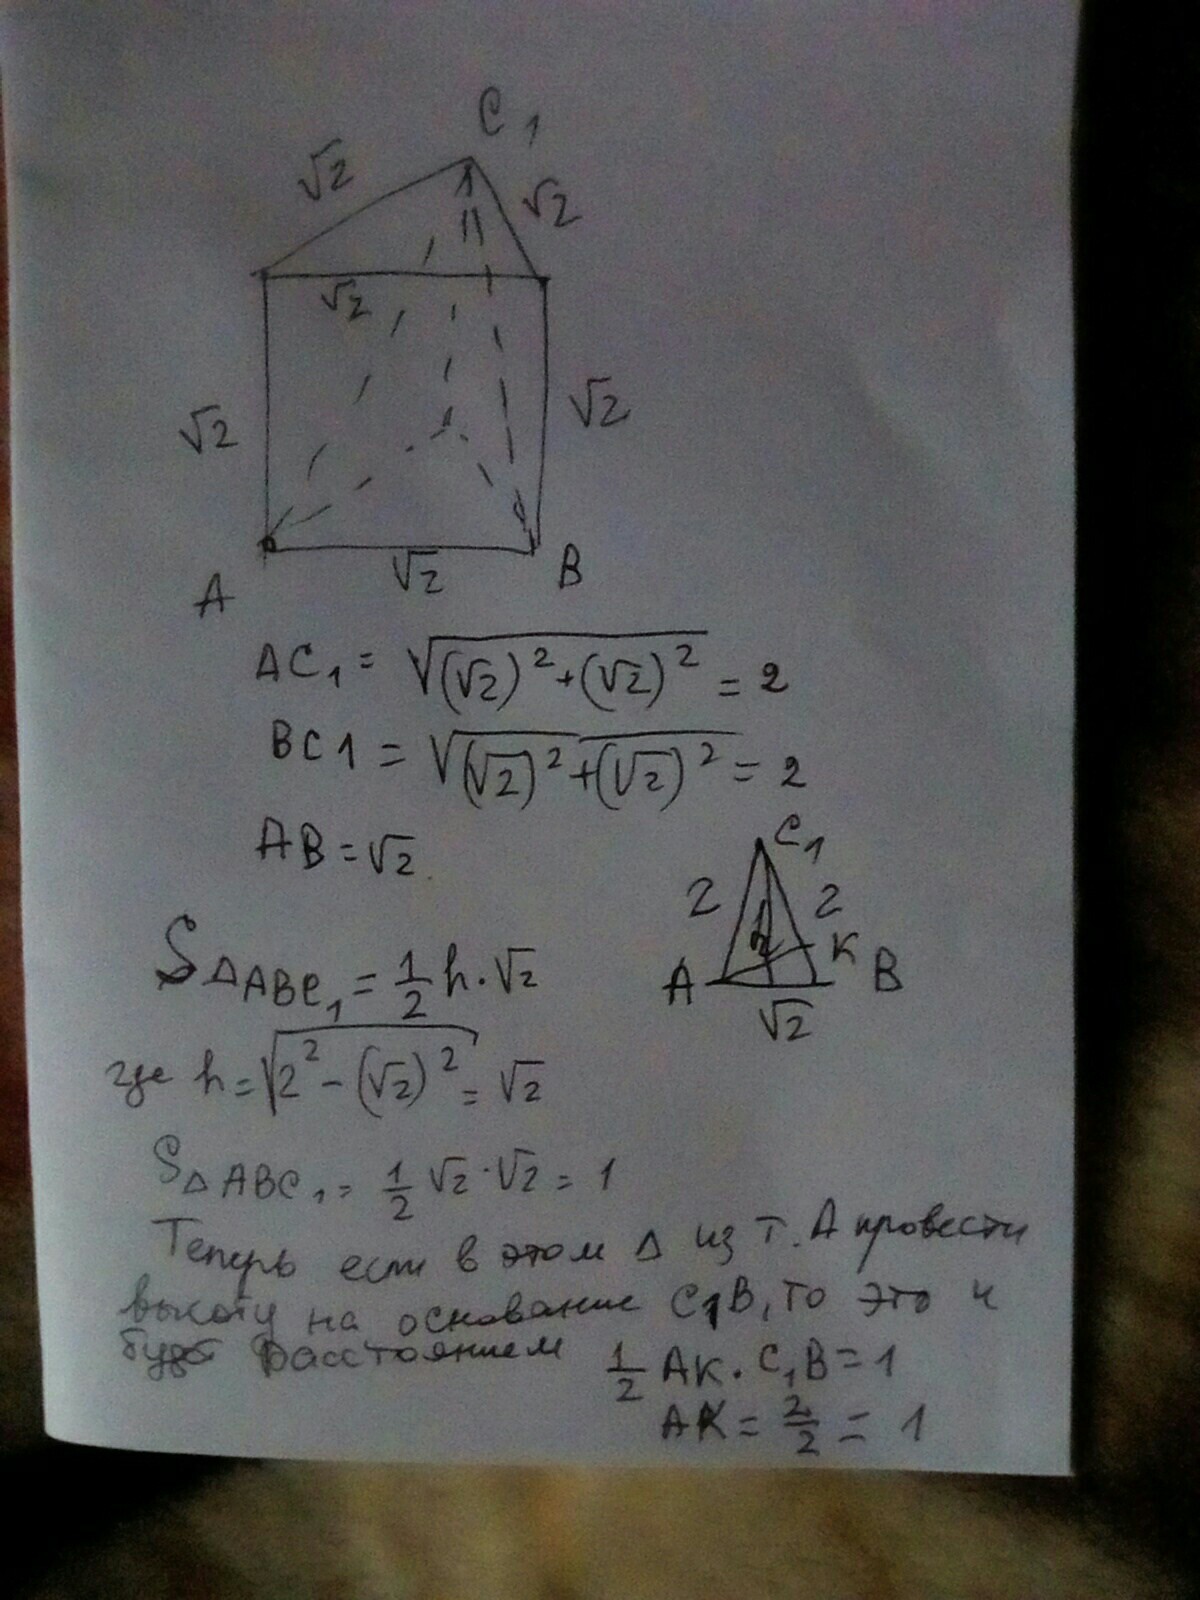 C₁
√2
√2
√2
√2
√2
A
√2
B
AC₁ = √((√2)² + (√2)²) = 2
BC1 = √((√2)² + (√2)²) = 2
AB = √2
C₁
2
2
h
K
A
B
√2
S△ABC₁ = 1/2 h · √2
где h = √(2² - (√2)²) = √2
S△ABC₁ = 1/2 √2 · √2 = 1
Теперь если в этом △ из т. A провести
высоту на основание C1B, то это и
будет расстоянием 1/2 AK · C₁B = 1
AK = 2/2 = 1